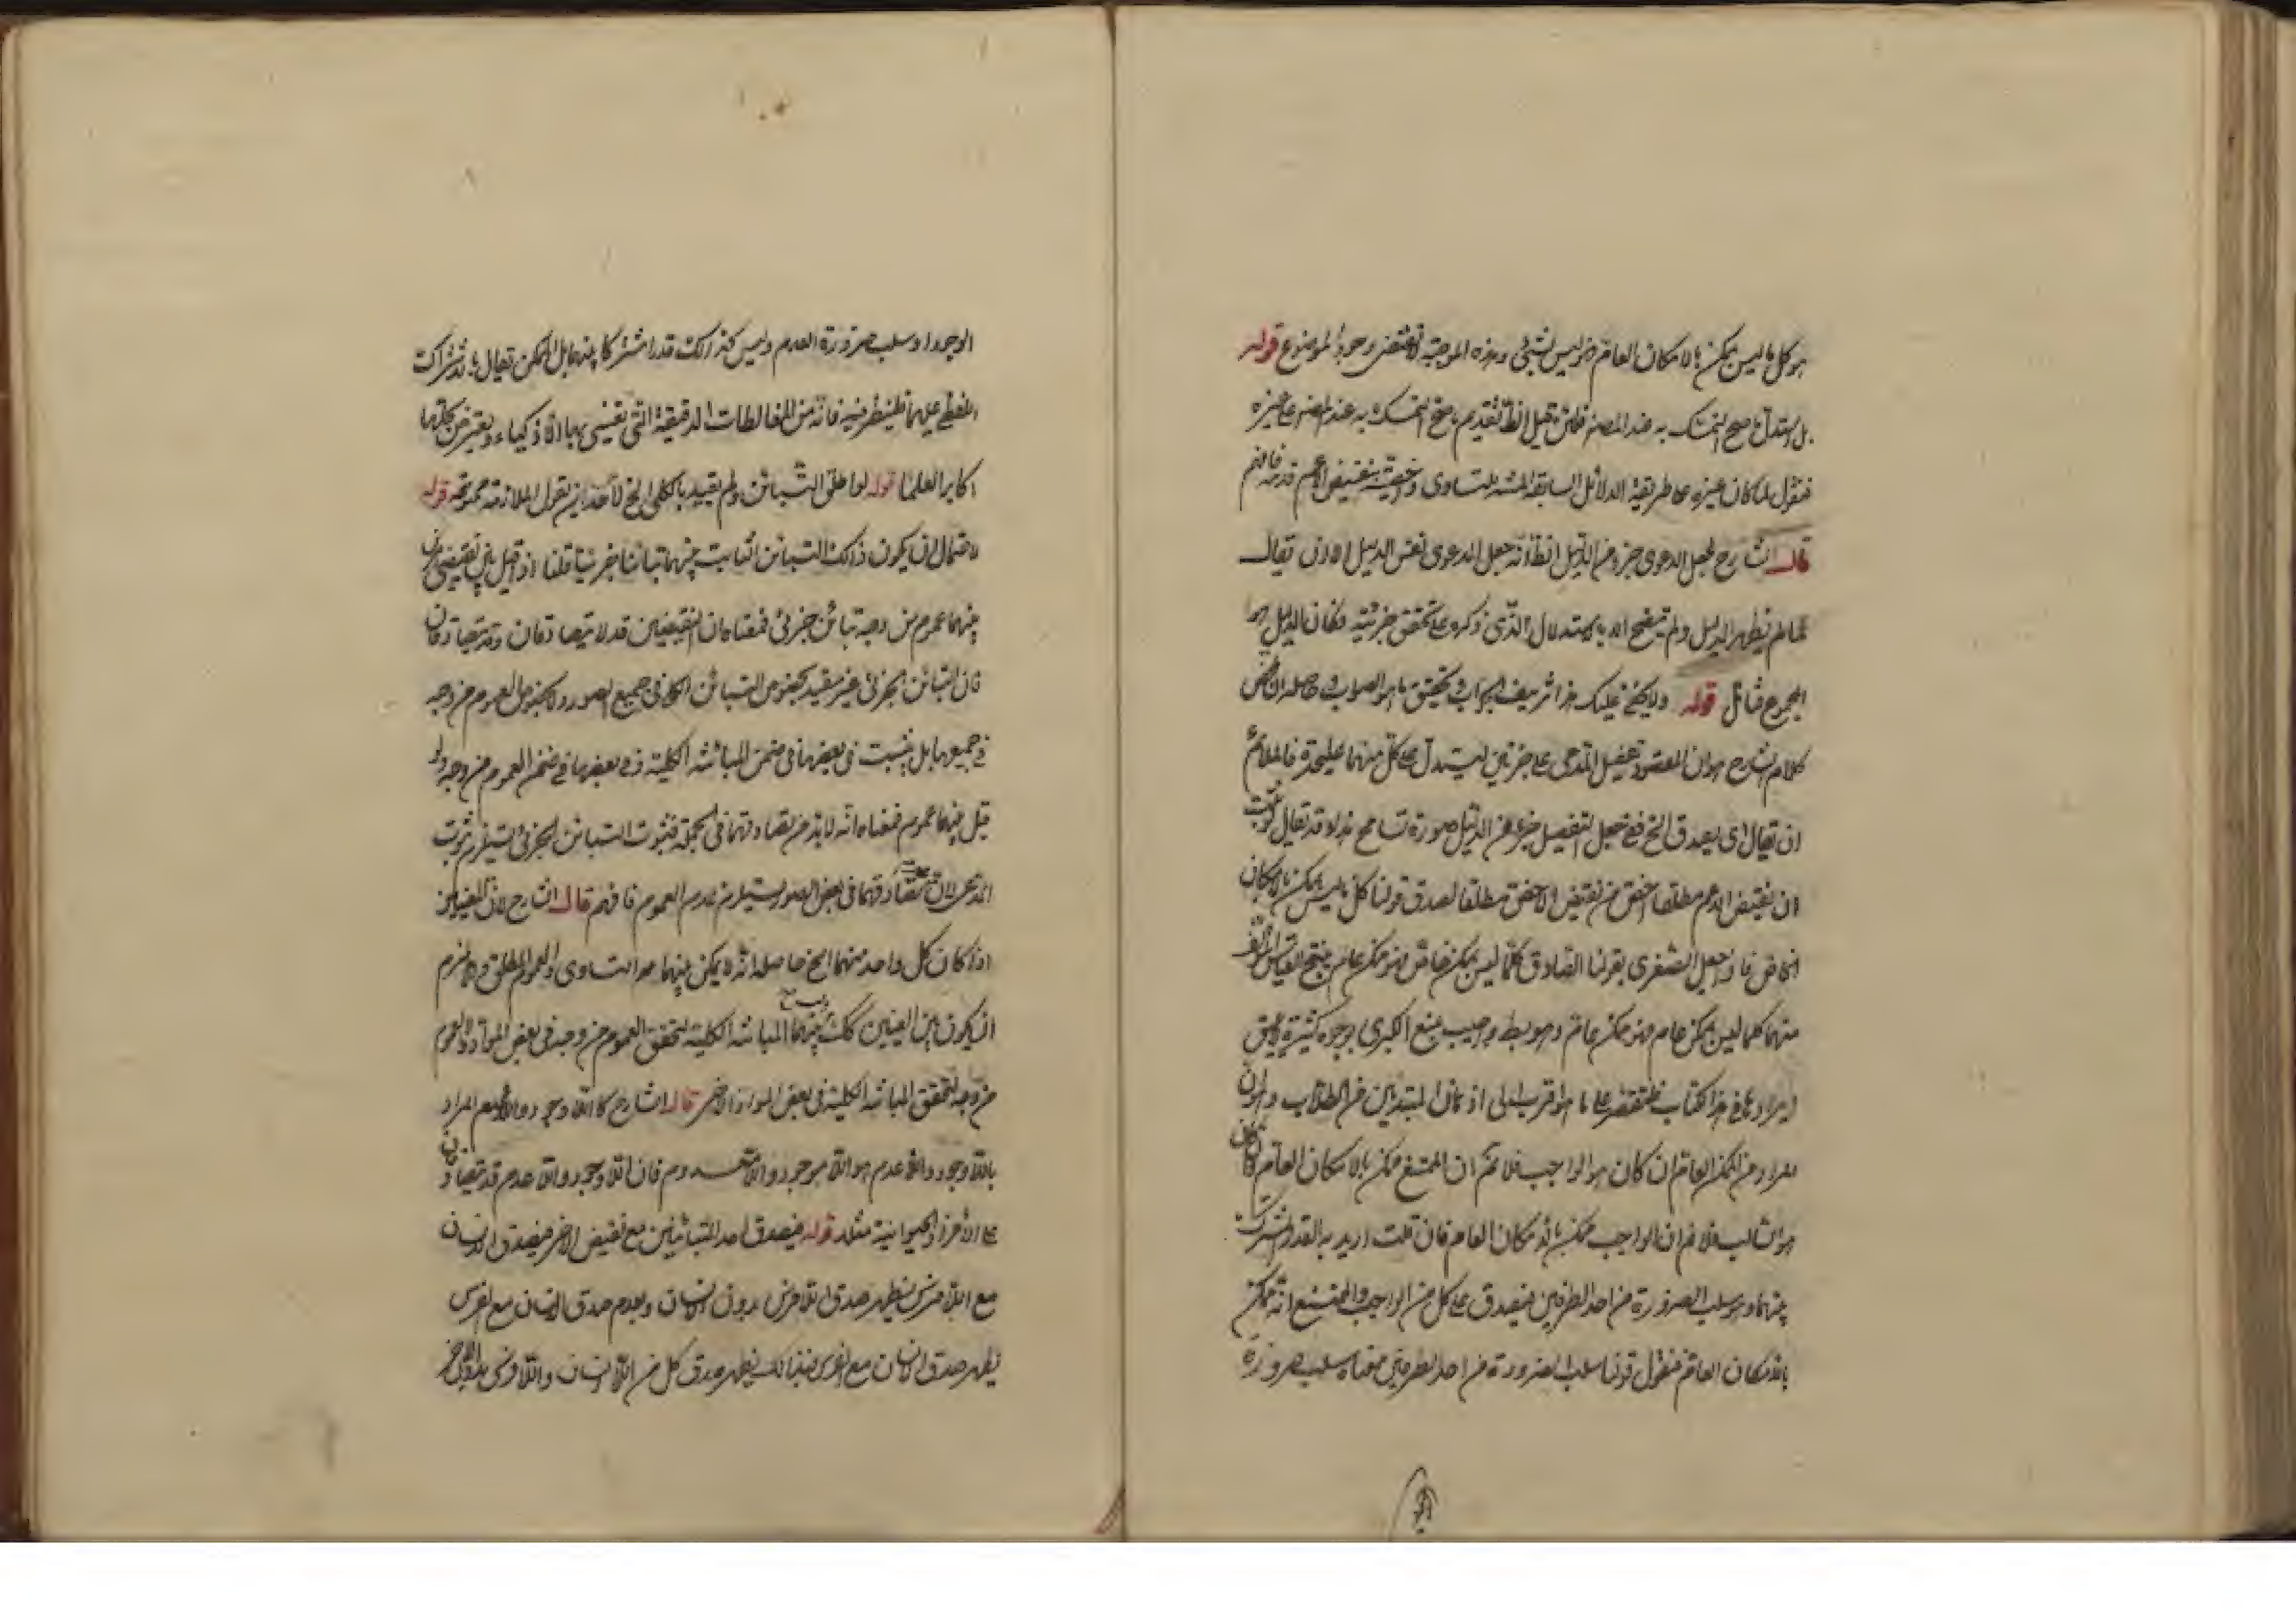 هو كل ما ليس بممكن بالامكان العام فهو ليس بشئ وهذه الموجبة لا تقتضى وجود الموضوع قوله
بل استدل بما صح التمسك به عند المصنف فان قيل تقديم ما صح التمسك به عند المصنف على غيره
فنقول لما كان غيره على طريقة الدلائل السابقة المثبتة للتساوى نقيض الاعم قدمه فافهم
قال الشارح لجعل الدعوى جزءا من الدليل انه جعل الدعوى نفس الدليل ان يقال
لما لم يظهر الدليل ولم يتضح الا بالاستدلال الذى ذكره على تحقق جزئيه فكان الدليل هو
المجموع فتأمل قوله ولا يخفى عليك هذا الجواب تحقيق ما هو الصواب حاصله ان
كلام الشارح هو ان المقصود تفصيل المدعى على جزئين ليستدل على كل منهما عليحدة فالملائم
ان يقال اى يصدق الخ ففى جعل التفصيل جزءا من الدليل صورة تسامح هذا وقد يقال لو ثبت
ان نقيض الاعم مطلقا اخص من نقيض الاخص مطلقا لصدق قولنا كل ما ليس بممكن بالامكان
الخاص فاذا جعل الصغرى لقولنا الصادق كلما ليس بممكن خاص فهو ممكن عام ينتج القياس
منهما كلما ليس بممكن عام فهو ممكن عام وهو بط واجيب بمنع الكبرى بوجوه كثيرة لا يليق
ايرادها فى هذا الكتاب فلنقتصر على ما هو اقرب الى اذهان المبتدئين من الطلاب وهو ان
المراد من الممكن العام ان كان هو الواجب فلا نم ان الممتنع ممكن بالامكان العام وان كان
هو السالب فلا نم ان الواجب ممكن بالامكان العام فان قلت اريد به القدر المشترك
بينهما وهو سلب الضرورة من احد الطرفين فيصدق على كل من الواجب والممتنع انه ممكن
بالامكان العام فنقول قولنا سلب الضرورة من احد الطرفين معناه سلب ضرورة
الوجود او سلب ضرورة العدم وليس كذلك قدرا مشتركا بينهما بل الممكن يقال بالاشتراك
اللفظى عليهما فلينظر فيه فانه من المغالطات الدقيقة التى بها الاذكياء ويعجز عن حلها
اكابر العلما قوله لو اطلق التباين ولم يقيد بالكلى الخ لاحد ان يقول الملازمة ممنوعة قوله
لاحتمال ان يكون ذلك التباين الثابت بينهما تباينا جزئيا قلنا اذا قيل بين نقيضى امرين
بينهما عموم من وجه تباين جزئى فمعناه ان النقيضين قد لا يتصادقان وقد يتصادقان
فان التباين الجزئى غير مقيد بخصوص التباين الكلى فى جميع الصور ولا بخصوص العموم من وجه
فى جميعها بل يثبت فى بعضها فى ضمن المباينة الكلية وفى بعضها فى ضمن العموم من وجه ولو
قيل بينهما عموم فمعناه انه لا بد من تصادقهما فى الجملة فثبوت التباين الجزئى يستلزم ثبوت
المدعى لان عدم تصادقهما فى بعض الصور يستلزم عدم العموم فافهم قال الشارح لان العينين
اذا كان كل واحد منهما الخ حاصله انه لا يمكن بينهما التساوى والعموم المطلق والا لزم
ان يكون بين العينين كك ولا بينهما المباينة الكلية لتحقق العموم من وجه فى بعض المواد ولا العموم
من وجه لتحقق المباينة الكلية فى بعض المواد الاخر قال الشارح كاللا وجود واللا عدم المراد
باللا وجود واللا عدم هو اللا موجود واللا معدوم فان اللا وجود واللا عدم قد يتصادقان
على اللا فرز والحيوانية مثلا قوله فيصدق احد المتباينين مع نقيض الاخر فيصدق الانسان
مع اللا فرس يظهر صدق اللا فرس بدون اللا انسان وبعدم صدق الانسان مع الفرس
يظهر صدق اللا انسان مع الفرس فبذلك يظهر صدق كل من اللا انسان واللا فرس بدون الاخر